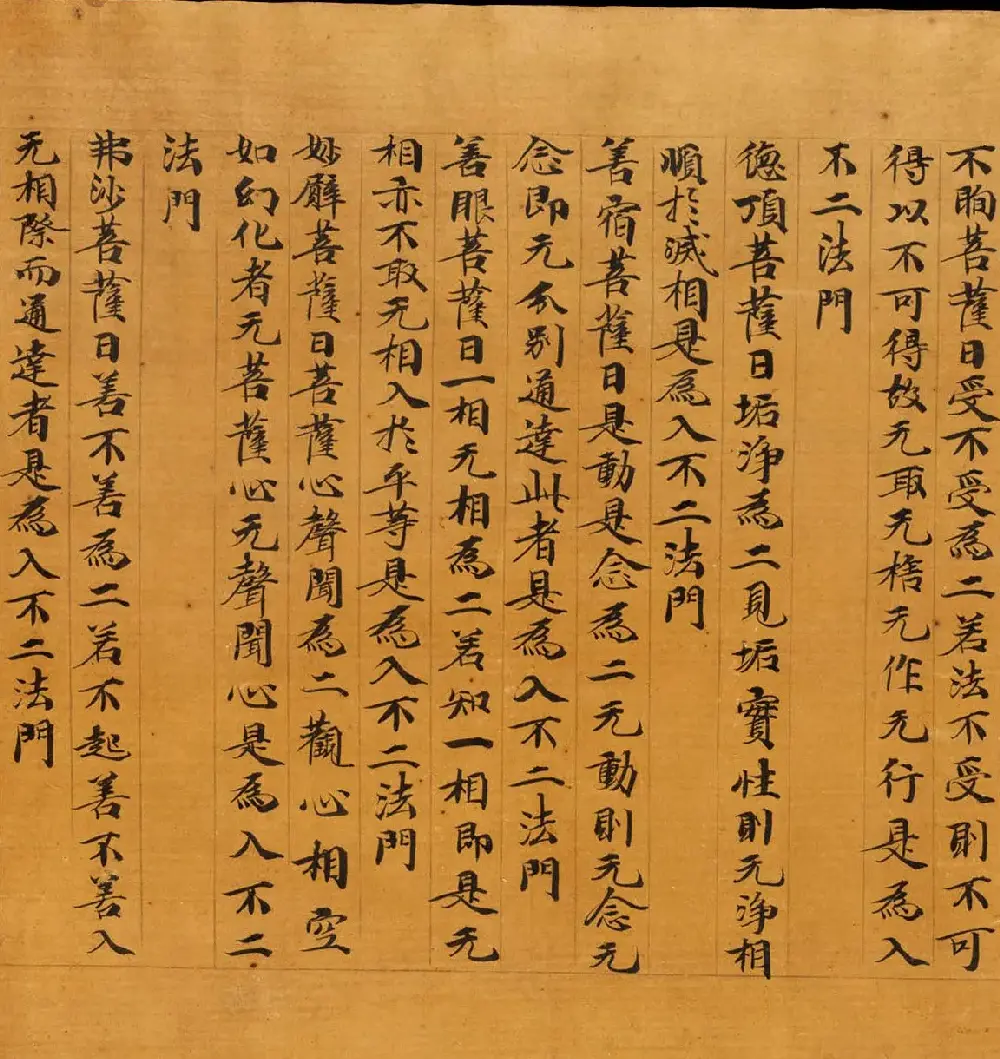 不眴菩薩曰受不受為二若法不受則不可
得以不可得故无取无捨无作无行是為入
不二法門
德頂菩薩曰垢淨為二見垢實性則无淨相
順於滅相是為入不二法門
善宿菩薩曰是動是念為二无動則无念无
念即无分別通達此者是為入不二法門
善眼菩薩曰一相无相為二若知一相即是无
相亦不取无相入於平等是為入不二法門
妙臂菩薩曰菩薩心聲聞為二觀心相空
如幻化者无菩薩心无聲聞心是為入不二
法門
弗沙菩薩曰善不善為二若不起善不善入
无相際而通達者是為入不二法門